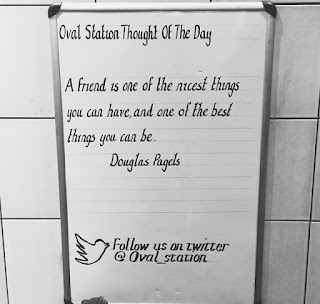 Oval Station Thought Of The Day
A friend is one of the nicest things
you can have, and one of the best
things you can be.
Douglas Pagels
Follow us on twitter
@ Oval_station